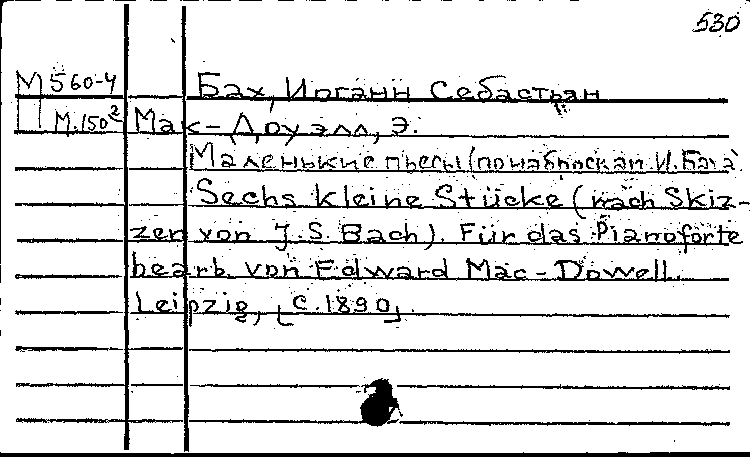 530
М 560-4
Бах, Иоганн Себастьян
П М.150²
Мак-Доуэлл, Э.
Маленькие пьесы (по наброскам И. Баха)
Sechs kleine Stücke (nach Skiz-
zen von J. S. Bach). Für das Pianoforte
bearb. von Edward Mac-Dowell.
Leipzig, [c. 1890].